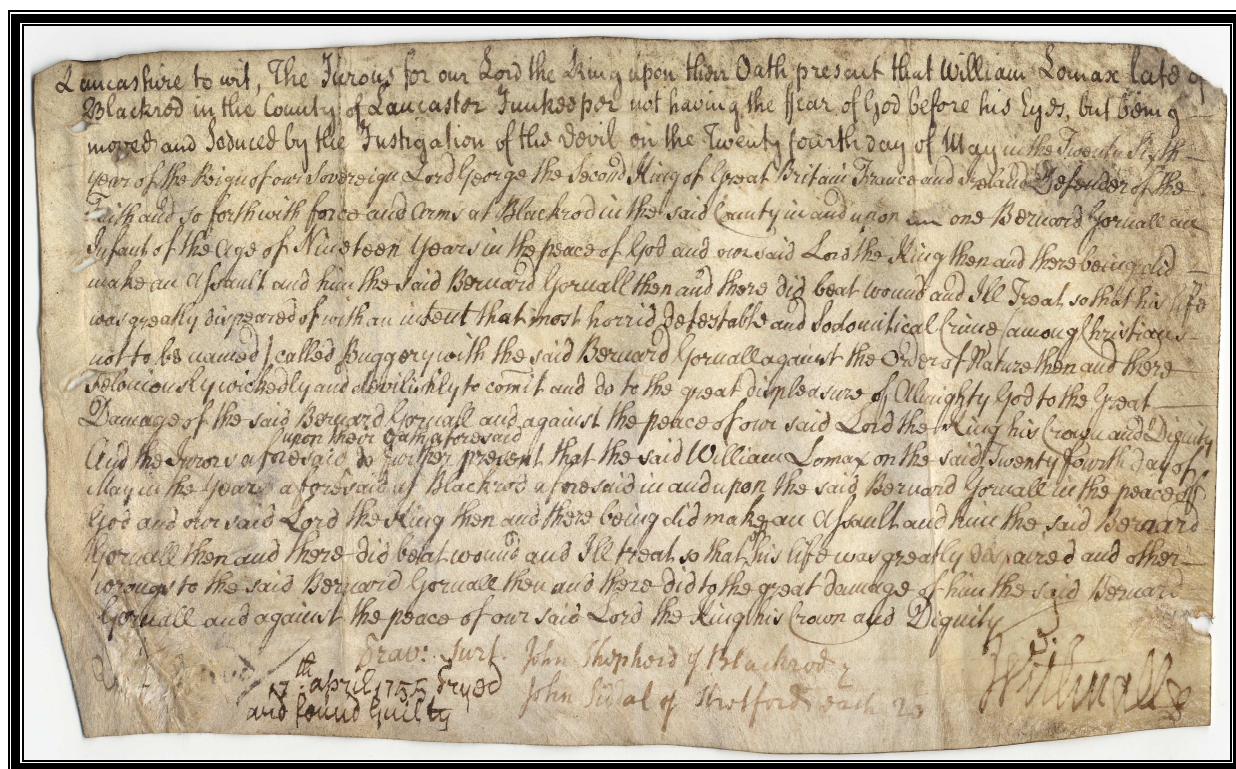 Lancashire to wit, The Jurors for our Lord the King upon their Oath present that William Lomax late of
Blackrod in the County of Lancaster Innkeeper not having the ffear of God before his Eyes, but being
moved and Seduced by the Instigation of the Devil on the Twenty fourth day of May in the Twenty Sixth
year of the Reign of our Sovereign Lord George the Second King of Great Britain France and Ireland Defender of the
Faith and so forth with force and Arms at Blackrod in the said County in and upon one Bernard Gorvall an
Infant of the Age of Nineteen Years in the peace of God and our said Lord the King then and there being did
make an Assault and him the said Bernard Gorvall then and there did beat wound and Ill Treat so that his life
was greatly dispeared of with an intent that most horrid Detestable and Sodomitical Crime (among Christians
not to be named) called Buggery with the said Bernard Gorvall against the Order of Nature then and there
feloniously wickedly and devilishly to comit and do to the great displeasure of Allmighty God to the Great
Damage of the said Bernard Gorvall and against the peace of our said Lord the King his Crown and Dignity
upon their Oath aforesaid
And the Jurors aforesaid do further present that the said William Lomax on the said Twenty fourth day of
May in the Year aforesaid at Blackrod aforesaid in and upon the said Bernard Gorvall in the peace of
God and our said Lord the King then and there being did make an Assault and him the said Bernard
Gorvall then and there did beat wound and Ill treat so that his life was greatly dispaired and other
wrongs to the said Bernard Gorvall then and there did to the great damage of him the said Bernard
Gorvall and against the peace of our said Lord the King his Crown and Dignity
John Shepherd of Blackrod
7th April 1755 Tryed
John of Stretford each 20
and found Guilty